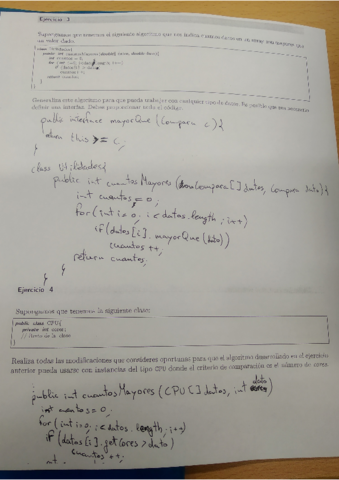 Ejercicio 3
Supongamos que tenemos el siguiente algoritmo que nos indica
un valor dado.
class Utilidades{
Generaliza este algoritmo para que pueda trabajar con cualquier tipo de datos. Es posible que sea necesario
definir una interfaz. Debes proporcionar todo el código.
public interface mayorQue (Compara c){
return this >= c,
}
class Utilidades{
public int cuantosMayores (Compara[] datos, Compara dato){
int cuantos = 0;
for(int i=0; i<datos.length; i++)
if(datos[i].mayorQue(dato))
cuantos++;
return cuantos;
}
}
Ejercicio 4
Supongamos que tenemos la siguiente clase:
public class CPU{
private int cores;
// Resto de la clase
Realiza todas las modificaciones que consideres oportunas para que el algoritmo desarrollado en el ejercicio
anterior pueda usarse con instancias del tipo CPU donde el criterio de comparación es el número de cores.
public int cuantosMayores (CPU[] datos, int dato
int cuantos = 0;
for(int i=0; i<datos.length; i++)
if (datos[i].getCores > dato)
cuantos++;